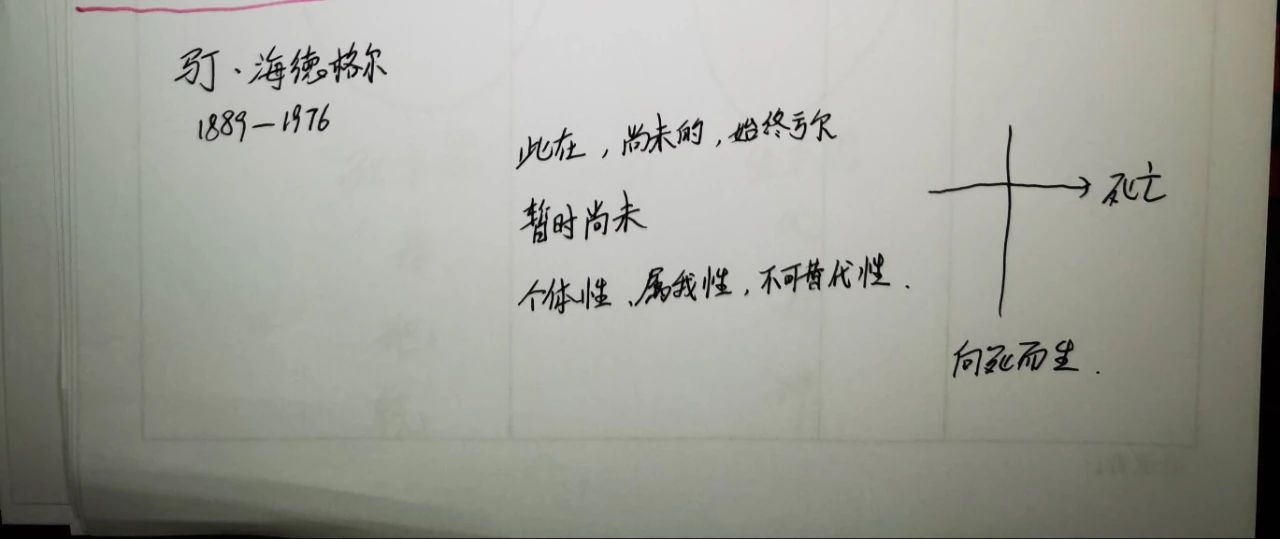 马丁·海德格尔
1889—1976
此在，尚未的，始终亏欠
暂时尚未
个体性、属我性，不可替代性.
死亡
向死而生.